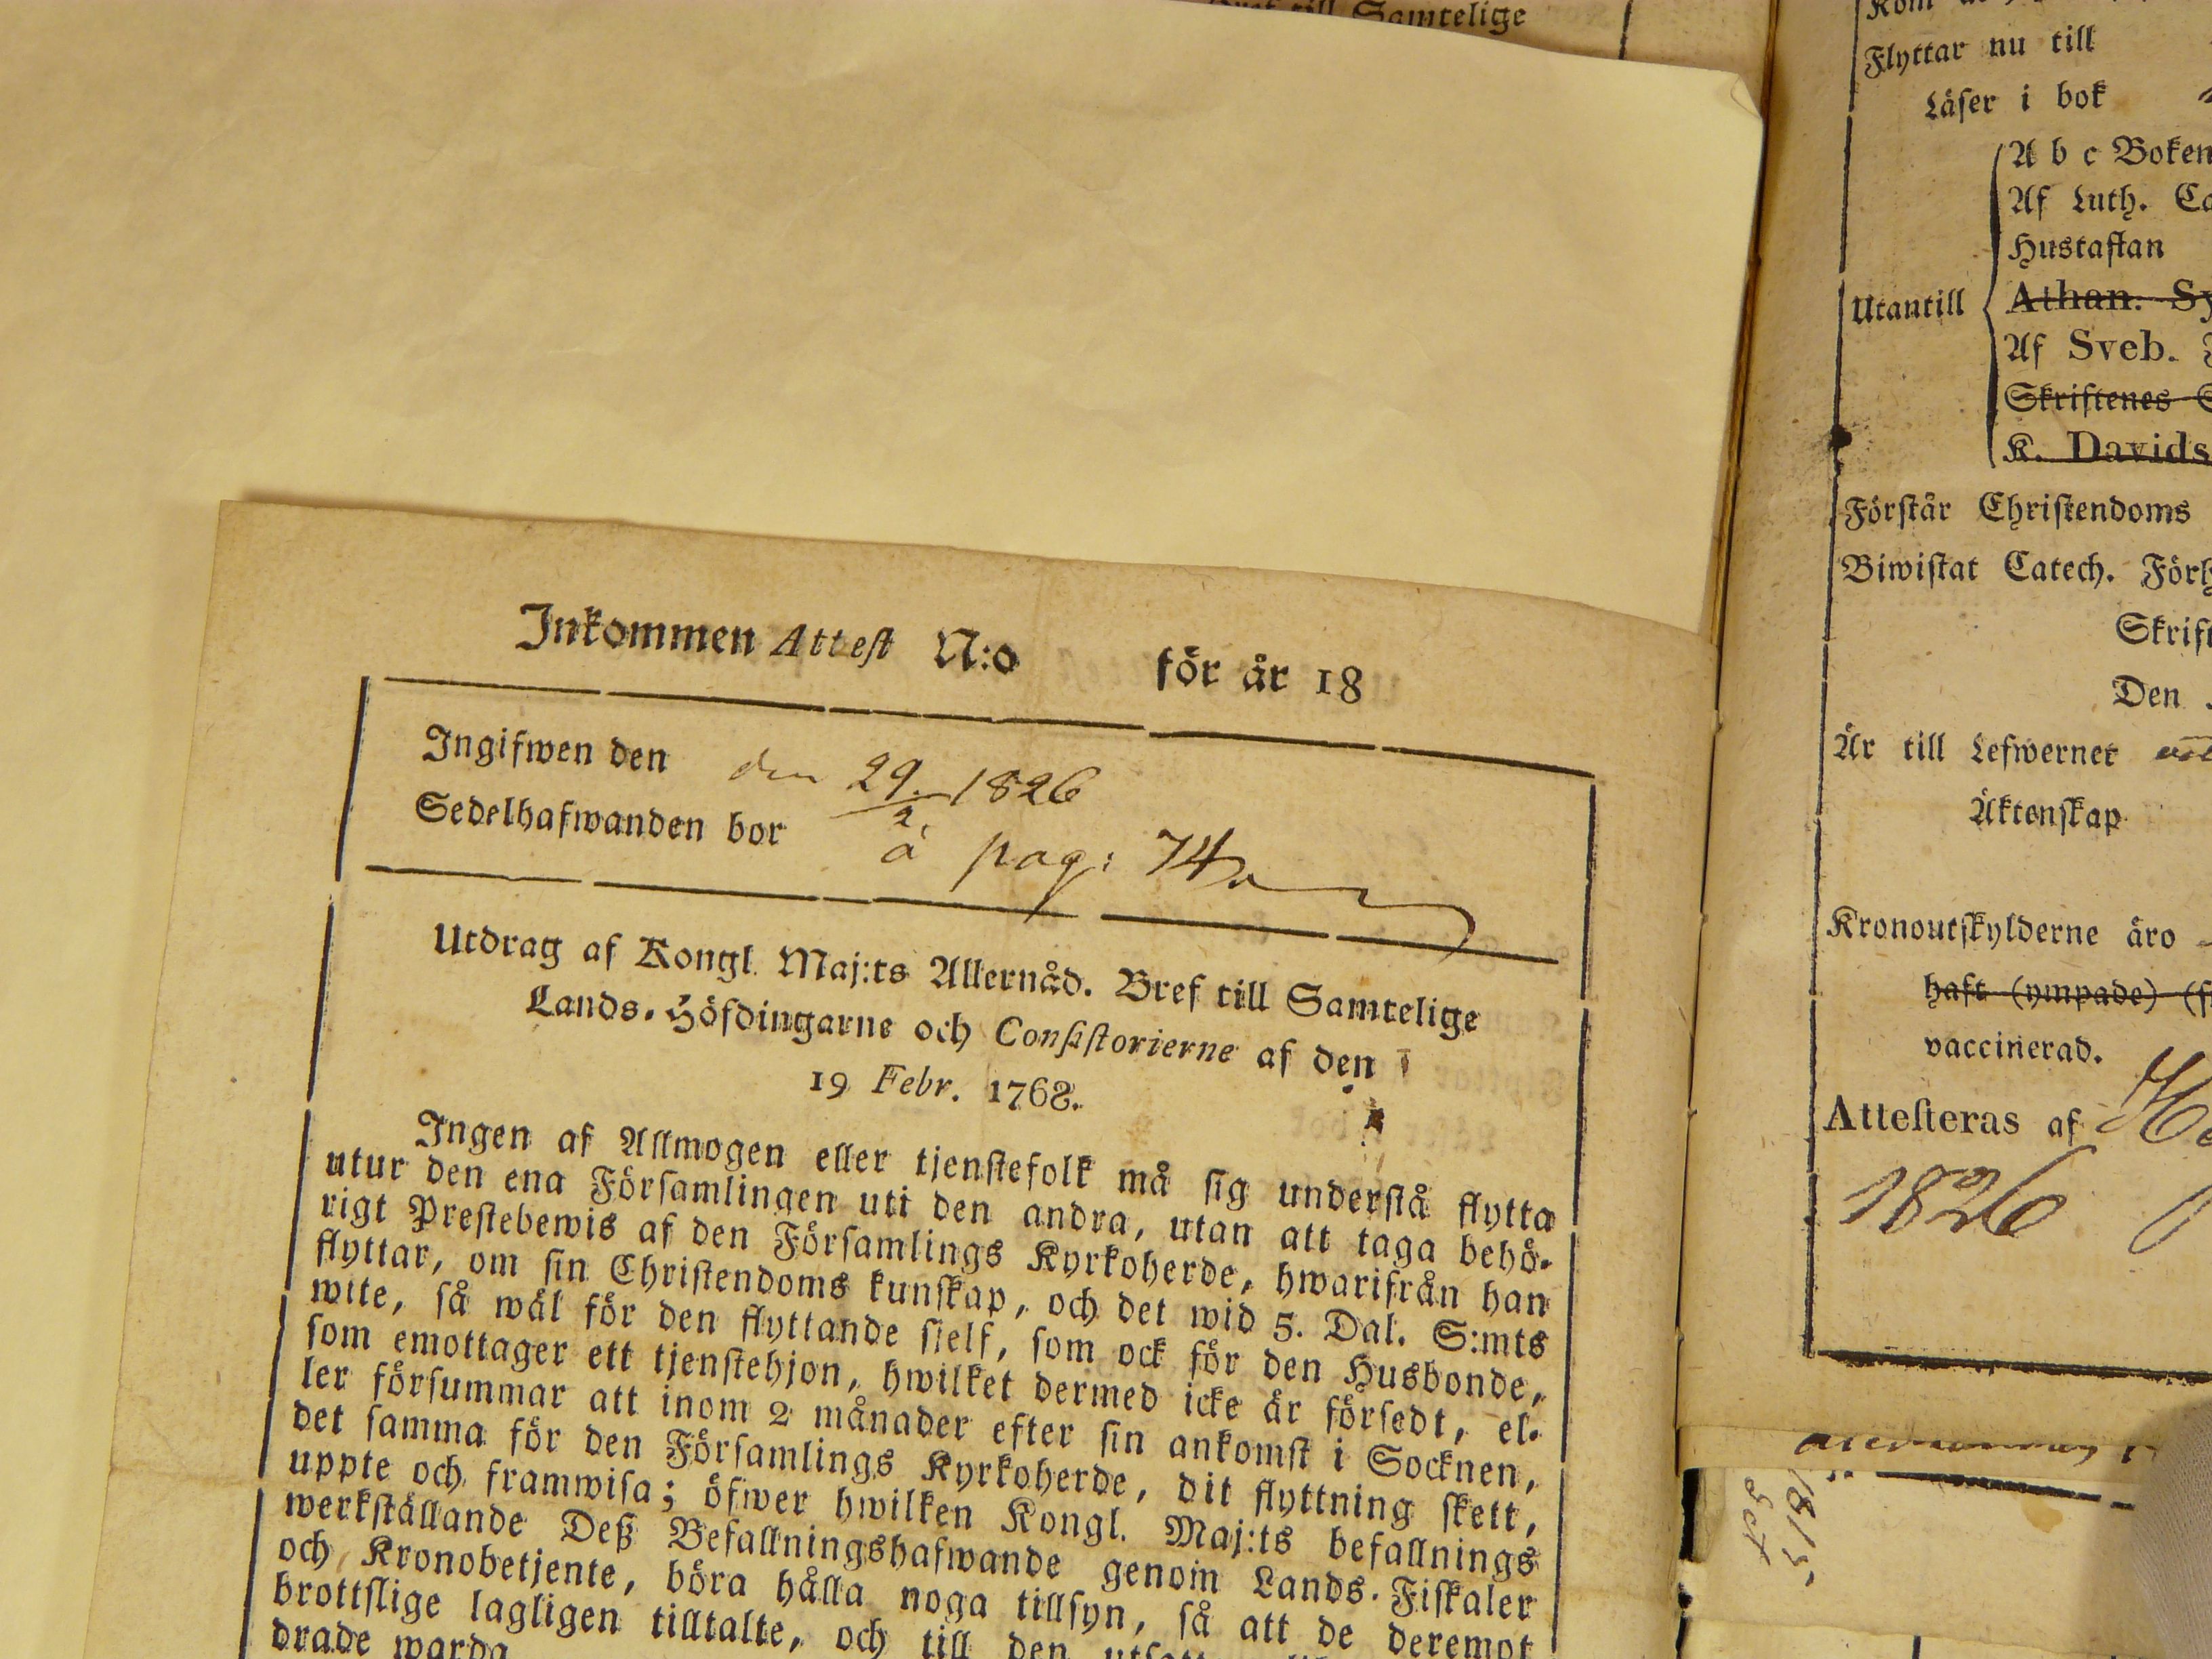 Bref till Samtelige
Inkommen Attest N:o för år 18
Ingifwen den den 29/2 1826
Sedelhafwanden bor å pag: 74
Utdrag af Kongl. Maj:ts Allernåd. Bref till Samtelige
Lands-Höfdingarne och Consistorierne af den
19 Febr. 1768.
Ingen af Allmogen eller tjenstefolk må sig understå flytta
utur den ena Församlingen uti den andra, utan att taga behö-
rigt Prestebewis af den Församlings Kyrkoherde, hwarifrån han
flyttar, om sin Christendoms kunskap, och det wid 5. Dal. S:mts
wite, så wäl för den flyttande sjelf, som ock för den Husbonde,
som emottager ett tjenstehjon, hwilket dermed icke är försedt, el-
ler försummar att inom 2 månader efter sin ankomst i Socknen,
det samma för den Församlings Kyrkoherde, dit flyttning skett,
uppte och framwisa; öfwer hwilken Kongl. Maj:ts befallnings
werkställande Deß Befallningshafwande genom Lands-Fiskaler
och Kronobetjente, böra hålla noga tillsyn, så att de deremot
brottslige lagligen tilltalte, och till den
drade warda
Flyttar nu till
Läser i bok
A b c Boken
Af Luth.
Hustaflan
Utantill
Athan.
Af Sveb.
Skriftenes
K. Davids
Förstår Christendoms
Biwistat Catech.
Den
Är till Lefwernet
Äktenskap
Kronoutskylderne äro
haft (ympade)
vaccinerad.
Attesteras af
1826
1815